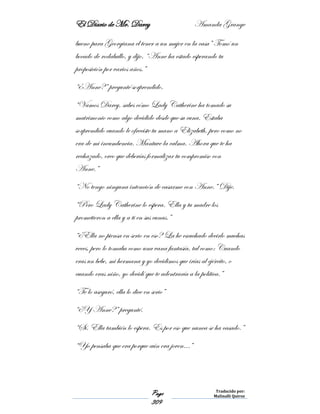 El Diario de Mr. Darcy Amanda Grange
bueno para Georgiana el tener a un mujer en la casa" Tomo un
bocado de rodaballo, y dijo, "Anne ha estado esperando tu
proposición por varios años."
"¿Anne?" pregunté sorprendido.
"Vamos Darcy, sabes cómo Lady Catherine ha tomado su
matrimonio como algo decidido desde que su cuna. Estaba
sorprendido cuando le ofreciste tu mano a Elizabeth, pero como no
era de mi incumbencia. Mantuve la calma. Ahora que te ha
rechazado, creo que deberías formalizar tu compromiso con
Anne."
"No tengo ninguna intención de casarme con Anne." Dije.
"Pero Lady Catherine lo espera. Ella y tu madre los
prometieron a ella y a ti en sus cunas."
"¿Ella no piensa en serio en eso? La he escuchado decirlo muchas
veces, pero lo tomaba como una vana fantasía, tal como: Cuando
eras un bebe, mi hermana y yo decidimos que irías al ejército, o
cuando eras niño, yo decidí que te adentraría a la política."
"Te lo aseguró, ella lo dice en serio".
"¿Y Anne?" pregunté.
"Si. Ella también lo espera. Es por eso que nunca se ha casado."
"Yo pensaba que era porque aún era joven...."
Page
309
Traducido por:
Malinalli Quiroz